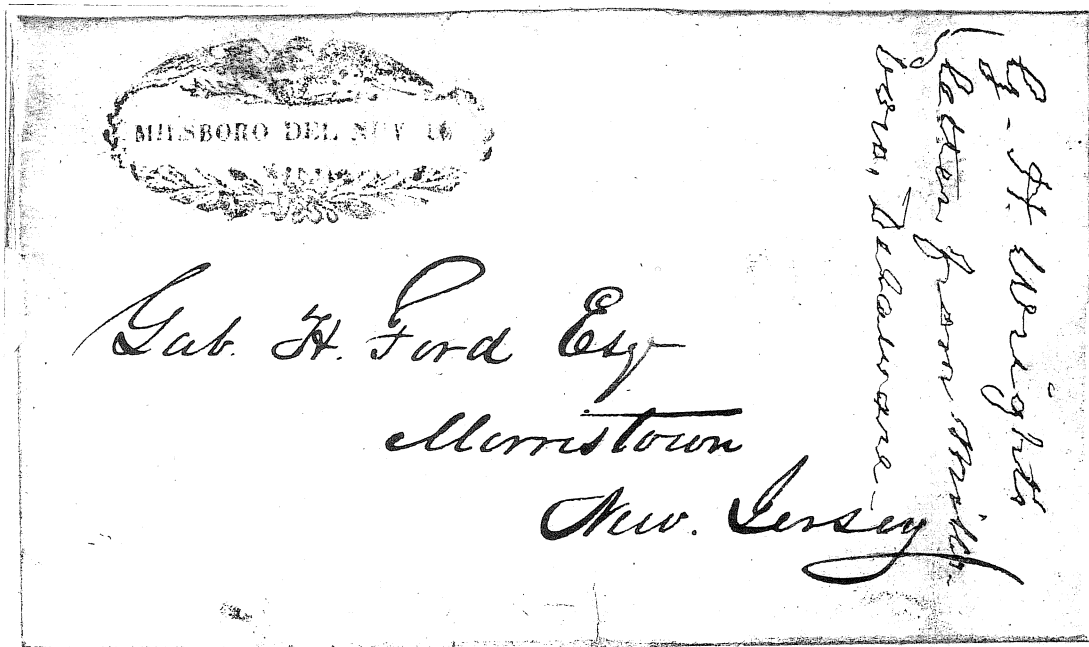 MILSBORO DEL NOV 16
Gab. H. Ford Esqr
Morristown
New. Jersey
G. H. Wright's
letter from Mills-
boro, Delaware-